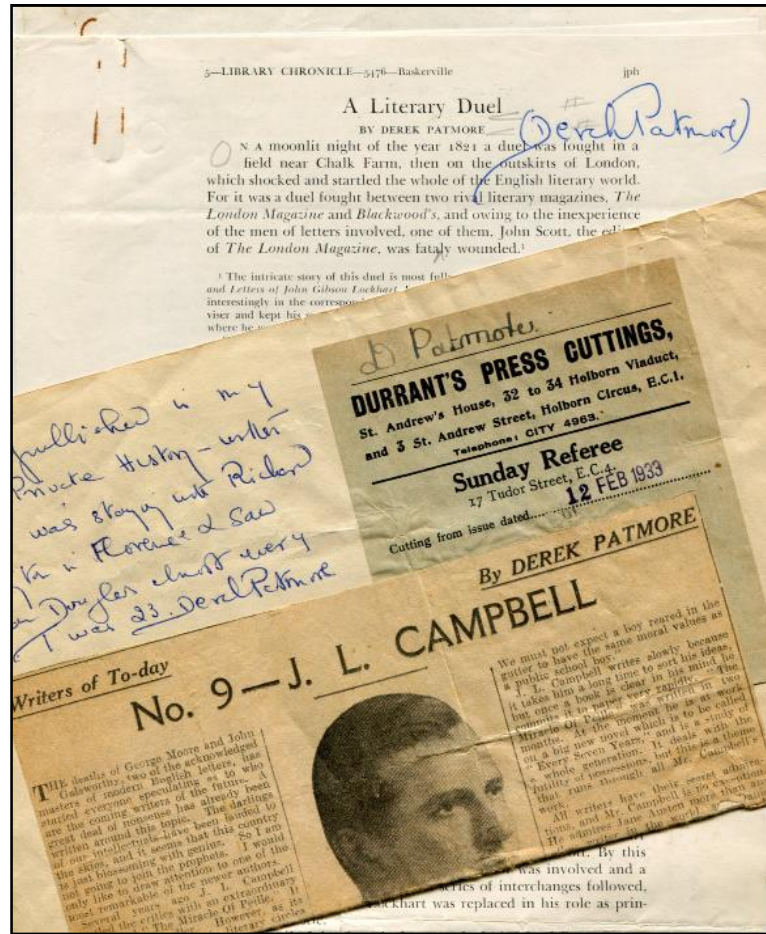 5—LIBRARY CHRONICLE—5476—Baskerville jph
A Literary Duel
BY DEREK PATMORE
(Derek Patmore)
ON A moonlit night of the year 1821 a duel was fought in a
field near Chalk Farm, then on the outskirts of London,
which shocked and startled the whole of the English literary world.
For it was a duel fought between two rival literary magazines, The
London Magazine and Blackwood's, and owing to the inexperience
of the men of letters involved, one of them, John Scott, the
of The London Magazine, was fataly wounded.¹
¹ The intricate story of this duel is most
and Letters of John Gibson Lockhart,
interestingly in the
viser and kept his
where he
published in my
Private History – written
was staying with Richard
in Florence & saw
Douglas almost every
I was 23. Derek Patmore
D Patmore.
DURRANT'S PRESS CUTTINGS,
St. Andrew's House, 32 to 34 Holborn Viaduct,
and 3 St. Andrew Street, Holborn Circus, E.C.1.
Telephone: CITY 4963.
Sunday Referee
17 Tudor Street, E.C.4.
Cutting from issue dated 12 FEB 1933
By DEREK PATMORE
Writers of To-day
No. 9—J. L. CAMPBELL
THE deaths of George Moore and John
Galsworthy, two of the acknowledged
masters of modern English letters, has
started everyone speculating as to who
are the coming writers of the future. A
great deal of nonsense has already been
written around this topic. The darlings
of our intellectuals have been lauded to
the skies, and it seems that this country
is just blossoming with genius. So I am
not going to join the prophets. I would
only like to draw attention to one of the
most remarkable of the newer authors.
Several years ago J. L. Campbell
the critics with an extraordinary
"The Miracle Of Peille." It
However, as its
literary circles
We must not expect a boy reared in the
gutter to have the same moral values as
a public school boy."
J. L. Campbell writes slowly because
it takes him a long time to sort his ideas,
but once a book is clear in his mind he
commits it to paper very rapidly. "The
Miracle Of Peille" was written in two
months. At the moment he is at work
on a big new novel which is to be called
"Every Seven Years," and is a study of
a whole generation. It deals with the
futility of possessions, but this is a theme
that runs through all Mr. Campbell's
work.
All writers have their secret
and Mr. Campbell is no
He admires Jane Austen more than
in the world
By this
was involved and a
series of interchanges followed,
Lockhart was replaced in his role as prin-